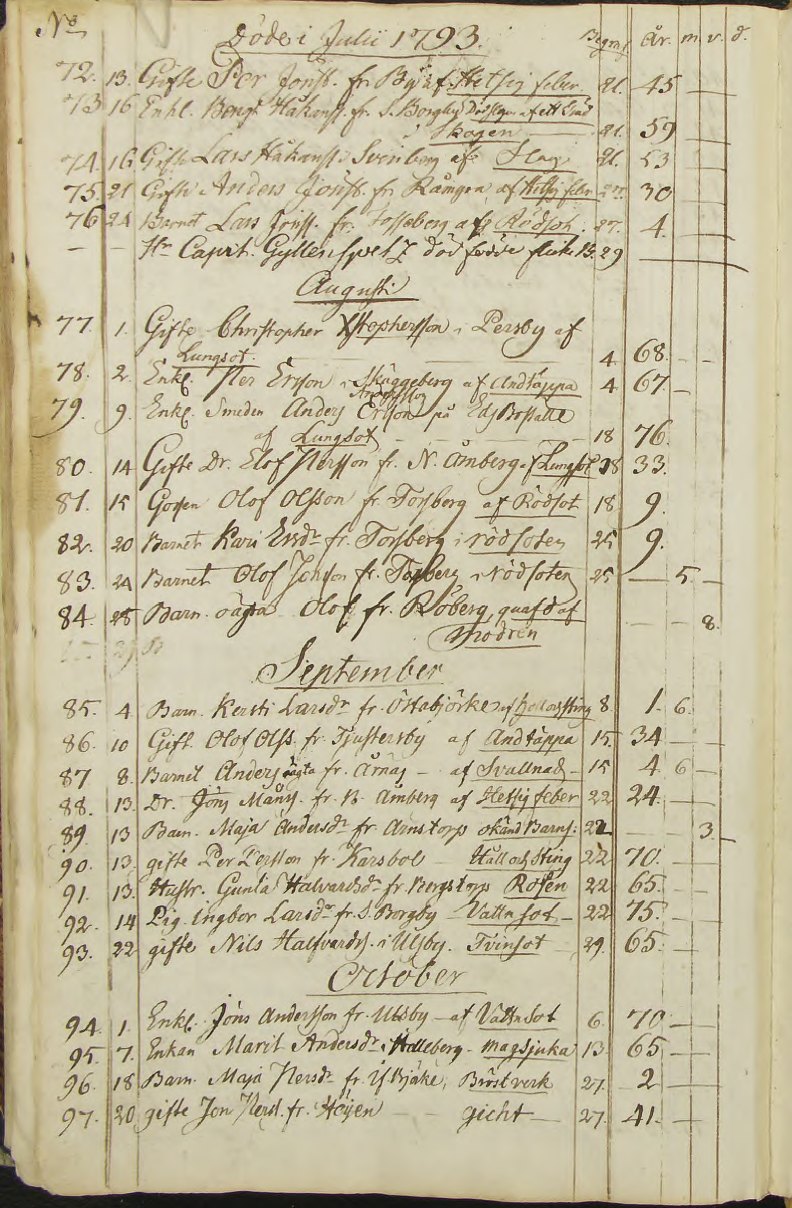 No Döde i Julii 1793. Begraf. År. m. v. d.
72. 13. Gifte Per Jonss. fr. By af Hetsig feber. 21. 45 — —
73 16 Enkl. Bengt Håkanss. fr. S. Borgby af ett träd
i Skogen 21. 59 —
74. 16 Gifte Lars Håkanss. i Svenberg af Slag 21. 53 —
75. 21 Gifte Anders Jönss. fr. Råmgra af Hetsig feber 27. 30 —
76 24 Barnet Lars Jönss. fr. Fosseberg af Rödsot. 27. 4. —
— — Hr Capit. död födde 29 —
Augusti
77. 1. Gifte Christopher Xstophersson i Persby af
Lungsot. — — 4 68. — —
78. 2. Enkl. Ner Ersson i Skäggeberg af Andtäppa 4 67. —
79. 9. Enkl. Smeden Anders Ersson på Boställe
af Lungsot — — 18 76.
80. 14 Gifte Dr. Elof Nersson fr. N. Åmberg af Lungsot 18 33.
81. 15 Gossen Olof Olsson fr. Torsberg af Rödsot 18. 9.
82. 20 Barnet Kari Ersdr fr. Torsberg i rödsoten 25 9.
83. 24 Barnet Olof Jonsson fr. Torsberg i Rödsoten 25 — 5. —
84. 28 Barn. oägta Olof fr. Roberg, quafd af — — 8.
Modren
September
85. 4. Barn. Kersti Larsdr fr. Östabjörke af håll och sting 8. 1. 6.
86. 10 Gift. Olof Olss. fr. Tjustersby af Andtäppa 15. 34 — —
87 8. Barnet Anders oägta fr. Årnäs — af Svallnad — 15 4. 6 —
88. 13. Dr. Jöns Månss. fr. N. Åmberg af Hetsig feber 22 24. —
89 13 Barn. Maja Andersdr fr. Arnstorp okänd Barnsj. 22 — — 3.
90. 13. gifte Per Persson fr. Karsbol — Håll och Sting 22 70. —
91. 13. Hustr. Gunla Halvardsdr fr. Bergstorp Rosen 22 65. —
92. 14 Pig. Ingbor Larsdr fr. S. Borgby — Vattn Sot — 22 75. —
93. 22 gifte Nils Halfvards. i Ulsby. Tvinsot — 29. 65. —
October
94. 1. Enkl. Jöns Andersson fr. Ulsby — af Vattn Sot 6. 70 —
95. 7. Enkan Marit Andersdr i Helleberg. magsjuka 13. 65 —
96. 18 Barn. Maja Nersdr fr. Bröstverk 27. 2 —
97. 20 gifte Jon Nerss. fr. Höjen — — gicht — 27. 41. —